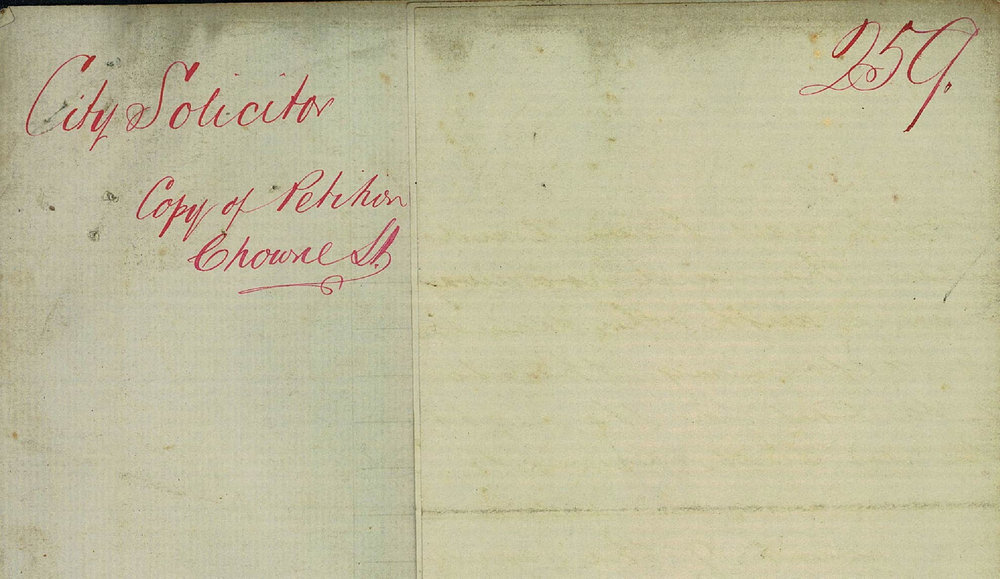 259.
City Solicitor
Copy of Petition
Chowne St.